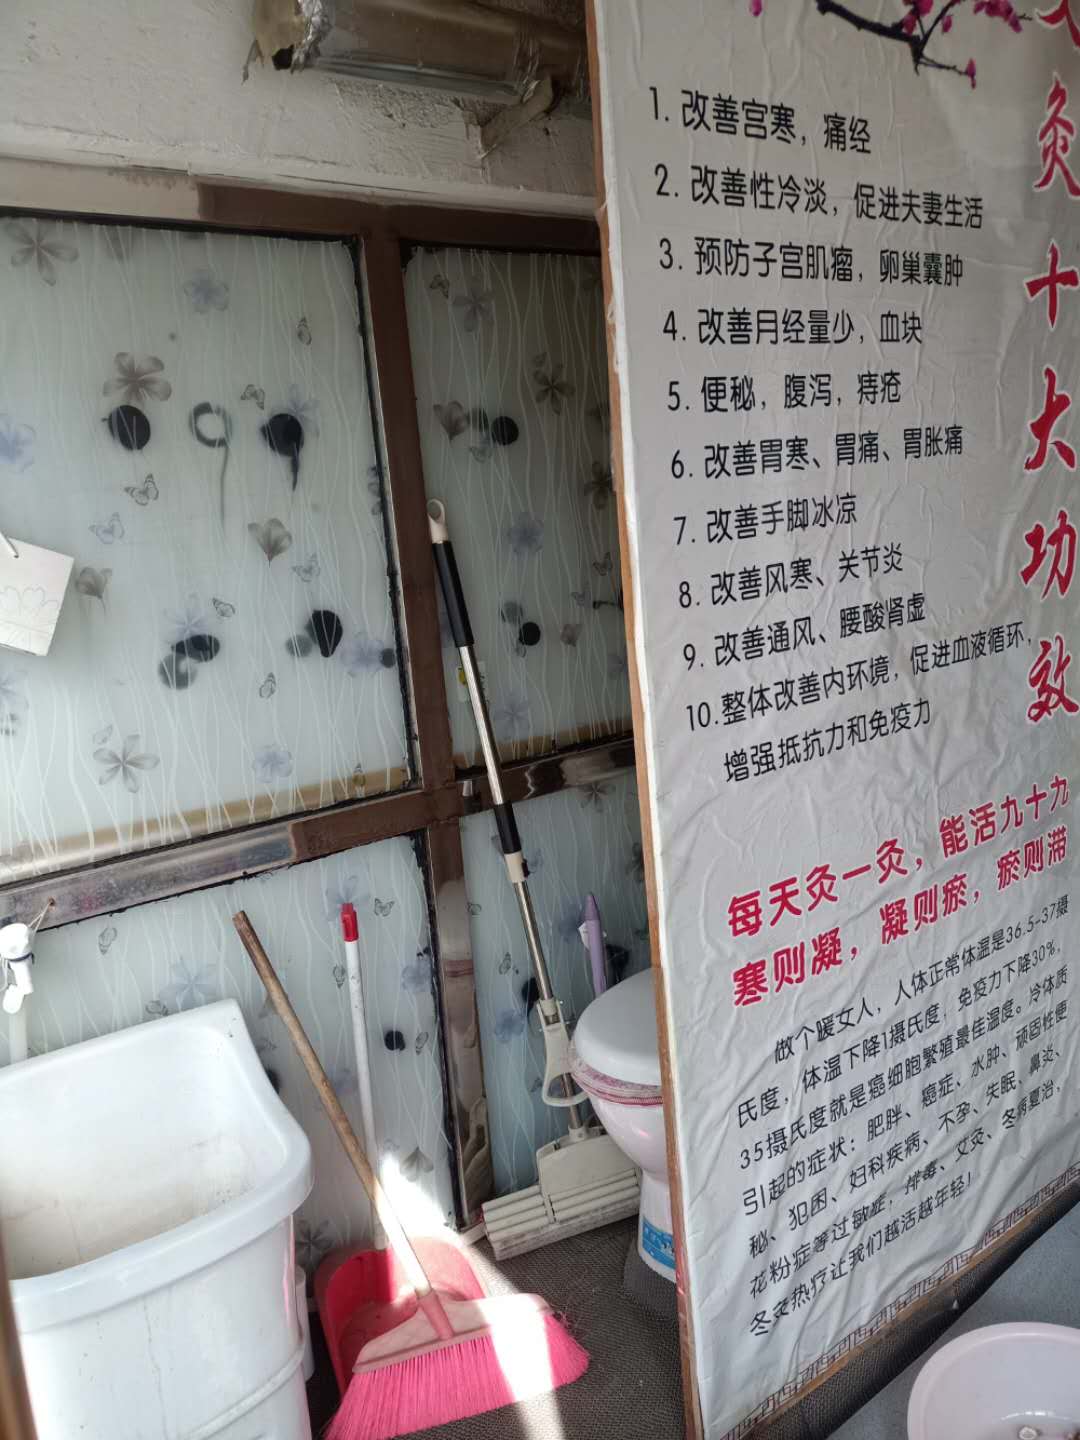 灸十大功效
1. 改善宫寒，痛经
2. 改善性冷淡，促进夫妻生活
3. 预防子宫肌瘤，卵巢囊肿
4. 改善月经量少，血块
5. 便秘，腹泻，痔疮
6. 改善胃寒、胃痛、胃胀痛
7. 改善手脚冰凉
8. 改善风寒、关节炎
9. 改善通风、腰酸肾虚
10. 整体改善内环境，促进血液循环，
增强抵抗力和免疫力
每天灸一灸，能活九十九
寒则凝，凝则瘀，瘀则滞
做个暖女人，人体正常体温是36.5-37摄
氏度，体温下降1摄氏度，免疫力下降30%，
35摄氏度就是癌细胞繁殖最佳温度。冷体质
引起的症状：肥胖、癌症、水肿、顽固性便
秘、犯困、妇科疾病、不孕、失眠、鼻炎、
花粉症等过敏症，排毒、艾灸、冬病夏治，
冬灸热疗让我们越活越年轻！